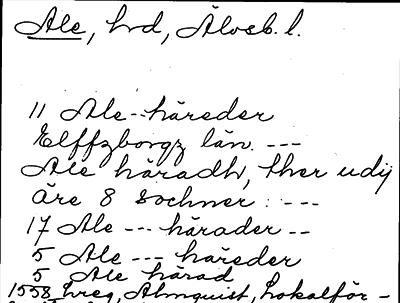 Ale, hrd, Älvsb. l.
11 Ale -- häreder
Elffzborgz län. ---
Ale häradh, ther udij
äre 8 sochner: ---
17 Ale --- härader --
5 Ale --- häreder
5 Ale härad
1558 Lreg, Almquist, Lokalför-